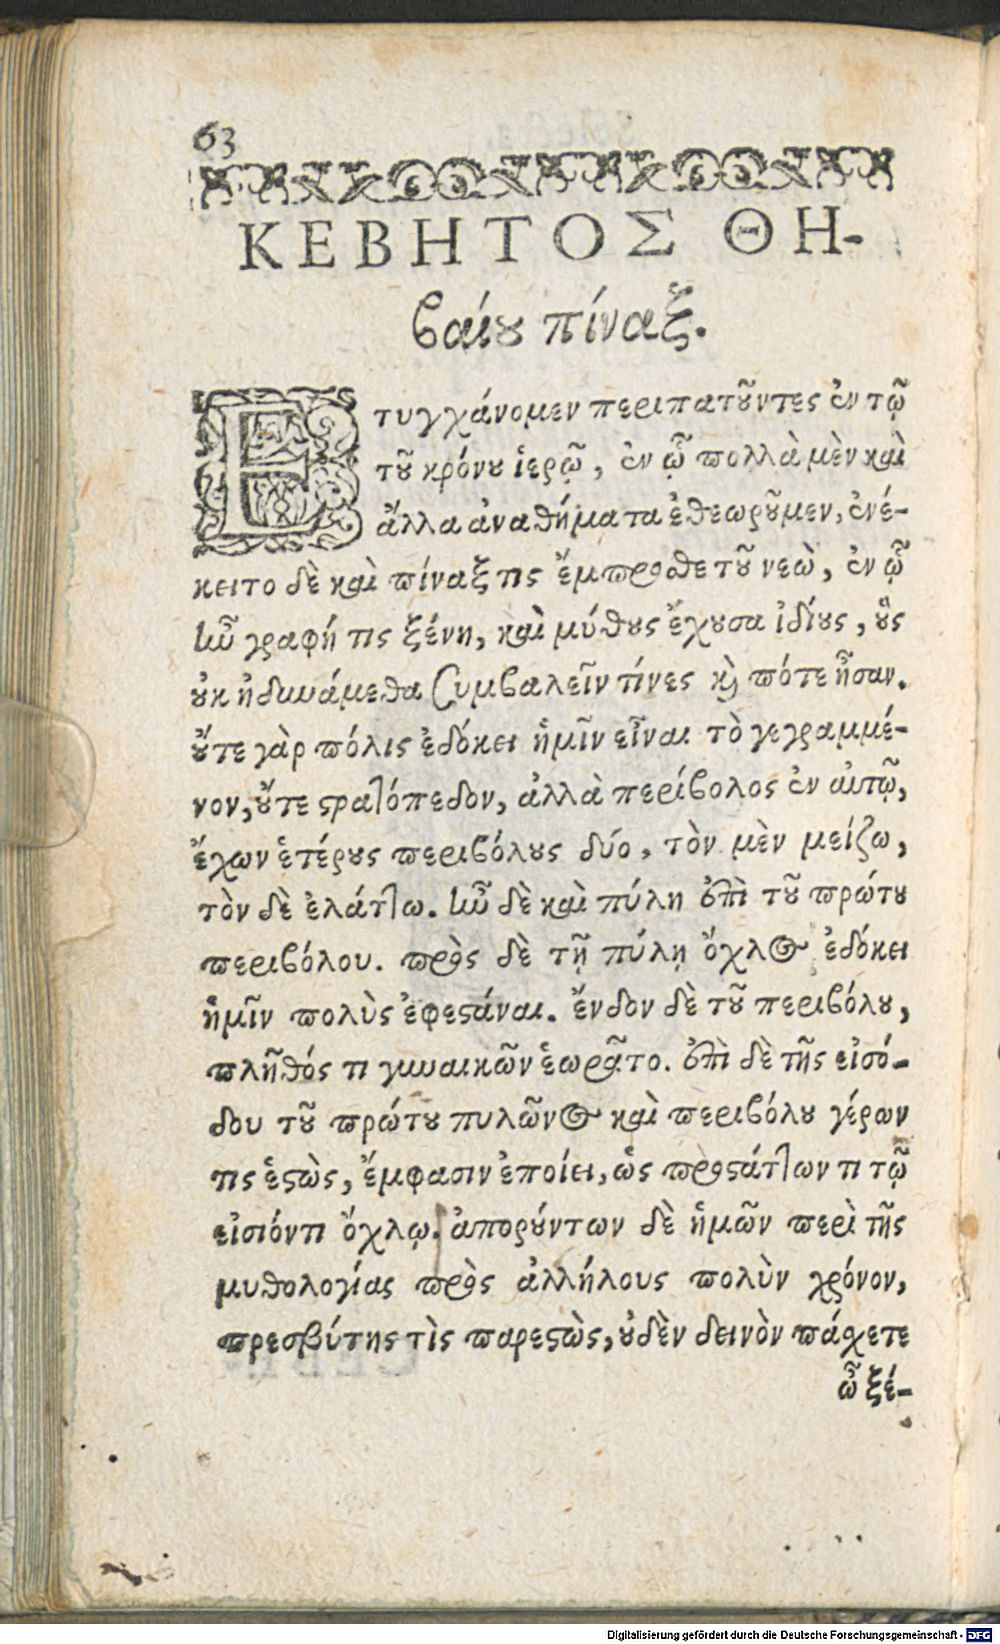 63
ΚΕΒΗΤΟΣ ΘΗ-
βαίου πίναξ.
Ετυγχάνομεν περιπατοῦντες ἐν τῷ
τοῦ κρόνου ἱερῷ, ἐν ᾧ πολλὰ μὲν καὶ
ἄλλα ἀναθήματα ἐθεωροῦμεν, ἐνέ-
κειτο δὲ καὶ πίναξ τις ἔμπροσθε τοῦ νεὼ, ἐν ᾧ
ἦν γραφή τις ξένη, καὶ μύθους ἔχουσα ἰδίους, οὓς
οὐκ ἠδυνάμεθα συμβαλεῖν τίνες καὶ πότε ἦσαν.
οὔτε γὰρ πόλις ἐδόκει ἡμῖν εἶναι τὸ γεγραμμέ-
νον, οὔτε στρατόπεδον, ἀλλὰ περίβολος ἐν αὐτῷ,
ἔχων ἑτέρους περιβόλους δύο, τὸν μὲν μείζω,
τὸν δὲ ἐλάττω. ἦν δὲ καὶ πύλη ἐπὶ τοῦ πρώτου
περιβόλου. πρὸς δὲ τῇ πύλῃ ὄχλος ἐδόκει
ἡμῖν πολὺς ἐφεστάναι. ἔνδον δὲ τοῦ περιβόλου,
πλῆθός τι γυναικῶν ἑωρᾶτο. ἐπὶ δὲ τῆς εἰσό-
δου τοῦ πρώτου πυλῶνος καὶ περιβόλου γέρων
τις ἑστὼς, ἔμφασιν ἐποίει, ὡς προστάττων τι τῷ
εἰσιόντι ὄχλῳ. ἀπορούντων δὲ ἡμῶν περὶ τῆς
μυθολογίας πρὸς ἀλλήλους πολὺν χρόνον,
πρεσβύτης τὶς παρεστὼς, οὐδὲν δεινὸν πάσχετε
ὦ ξέ-
Digitalisierung gefördert durch die Deutsche Forschungsgemeinschaft - DFG